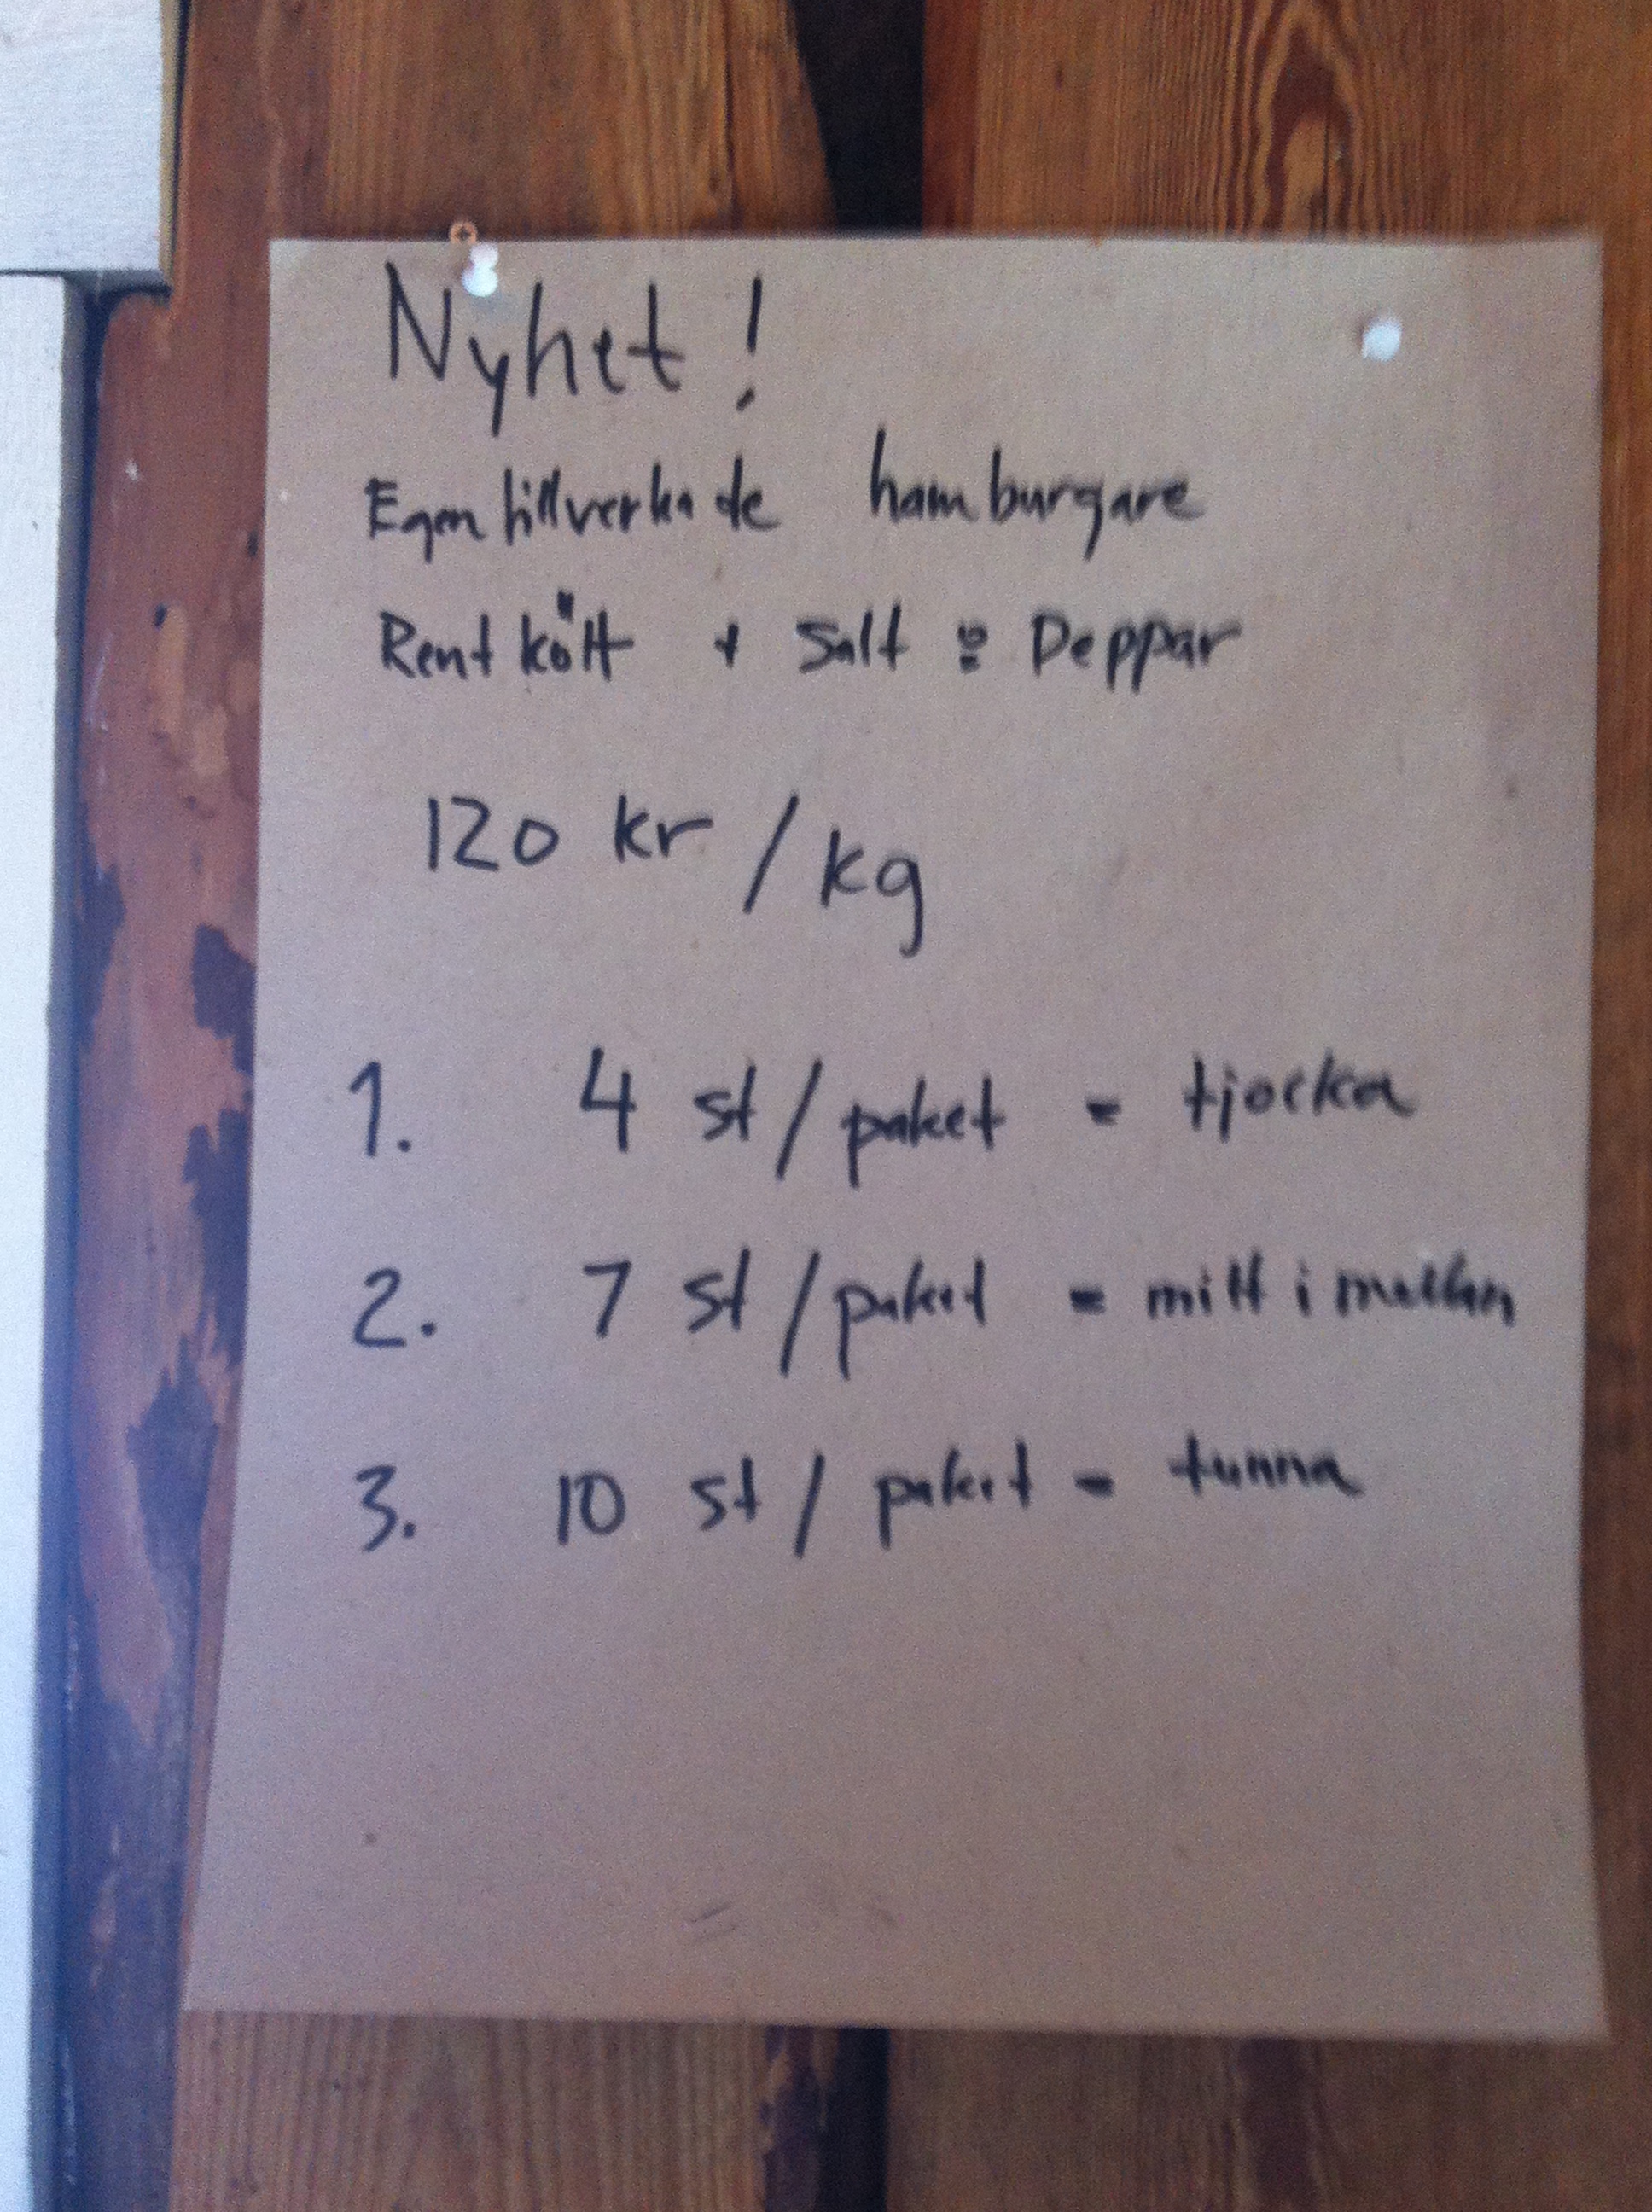 Nyhet!
Egentillverkade hamburgare
Rent kött + Salt & Peppar
120 kr/kg
1. 4 st/paket = tjocka
2. 7 st/paket = mitt i mellan
3. 10 st/paket = tunna